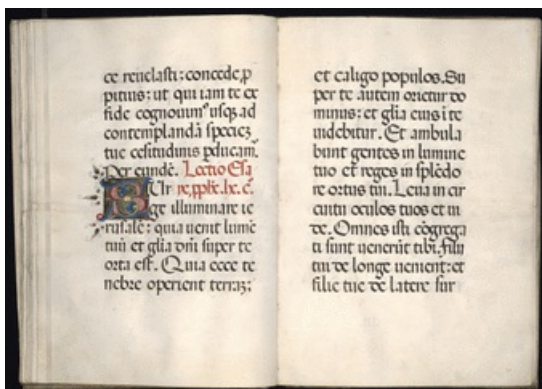 ce reuelasti: concede, ꝓ
pitius: ut qui iam te ex
fide cognouimꝰ usqꝫ ad
contemplandā specieꝫ
tue celsitudinis ꝑducam̃.
Per eundē. Lectio Esa
SUr re, ꝓphē. lx. c̃.
ge illuminare ie
rusalē: quia uenit lumē
tuū et gl̃ia dñi super te
orta est. Quia ecce te
nebre operient terraꝫ:
et caligo populos. Su
per te autem orietur do
minus: et gl̃ia eius ī te
uidebitur. Et ambula
bunt gentes in lumine
tuo et reges in splēdo
re ortus tui. Leua in cir
cuitu oculos tuos et ui
de. Omnes isti cōgrega
ti sunt uenerūt tibi. filii
tui de longe uenient: et
filie tue de latere sur